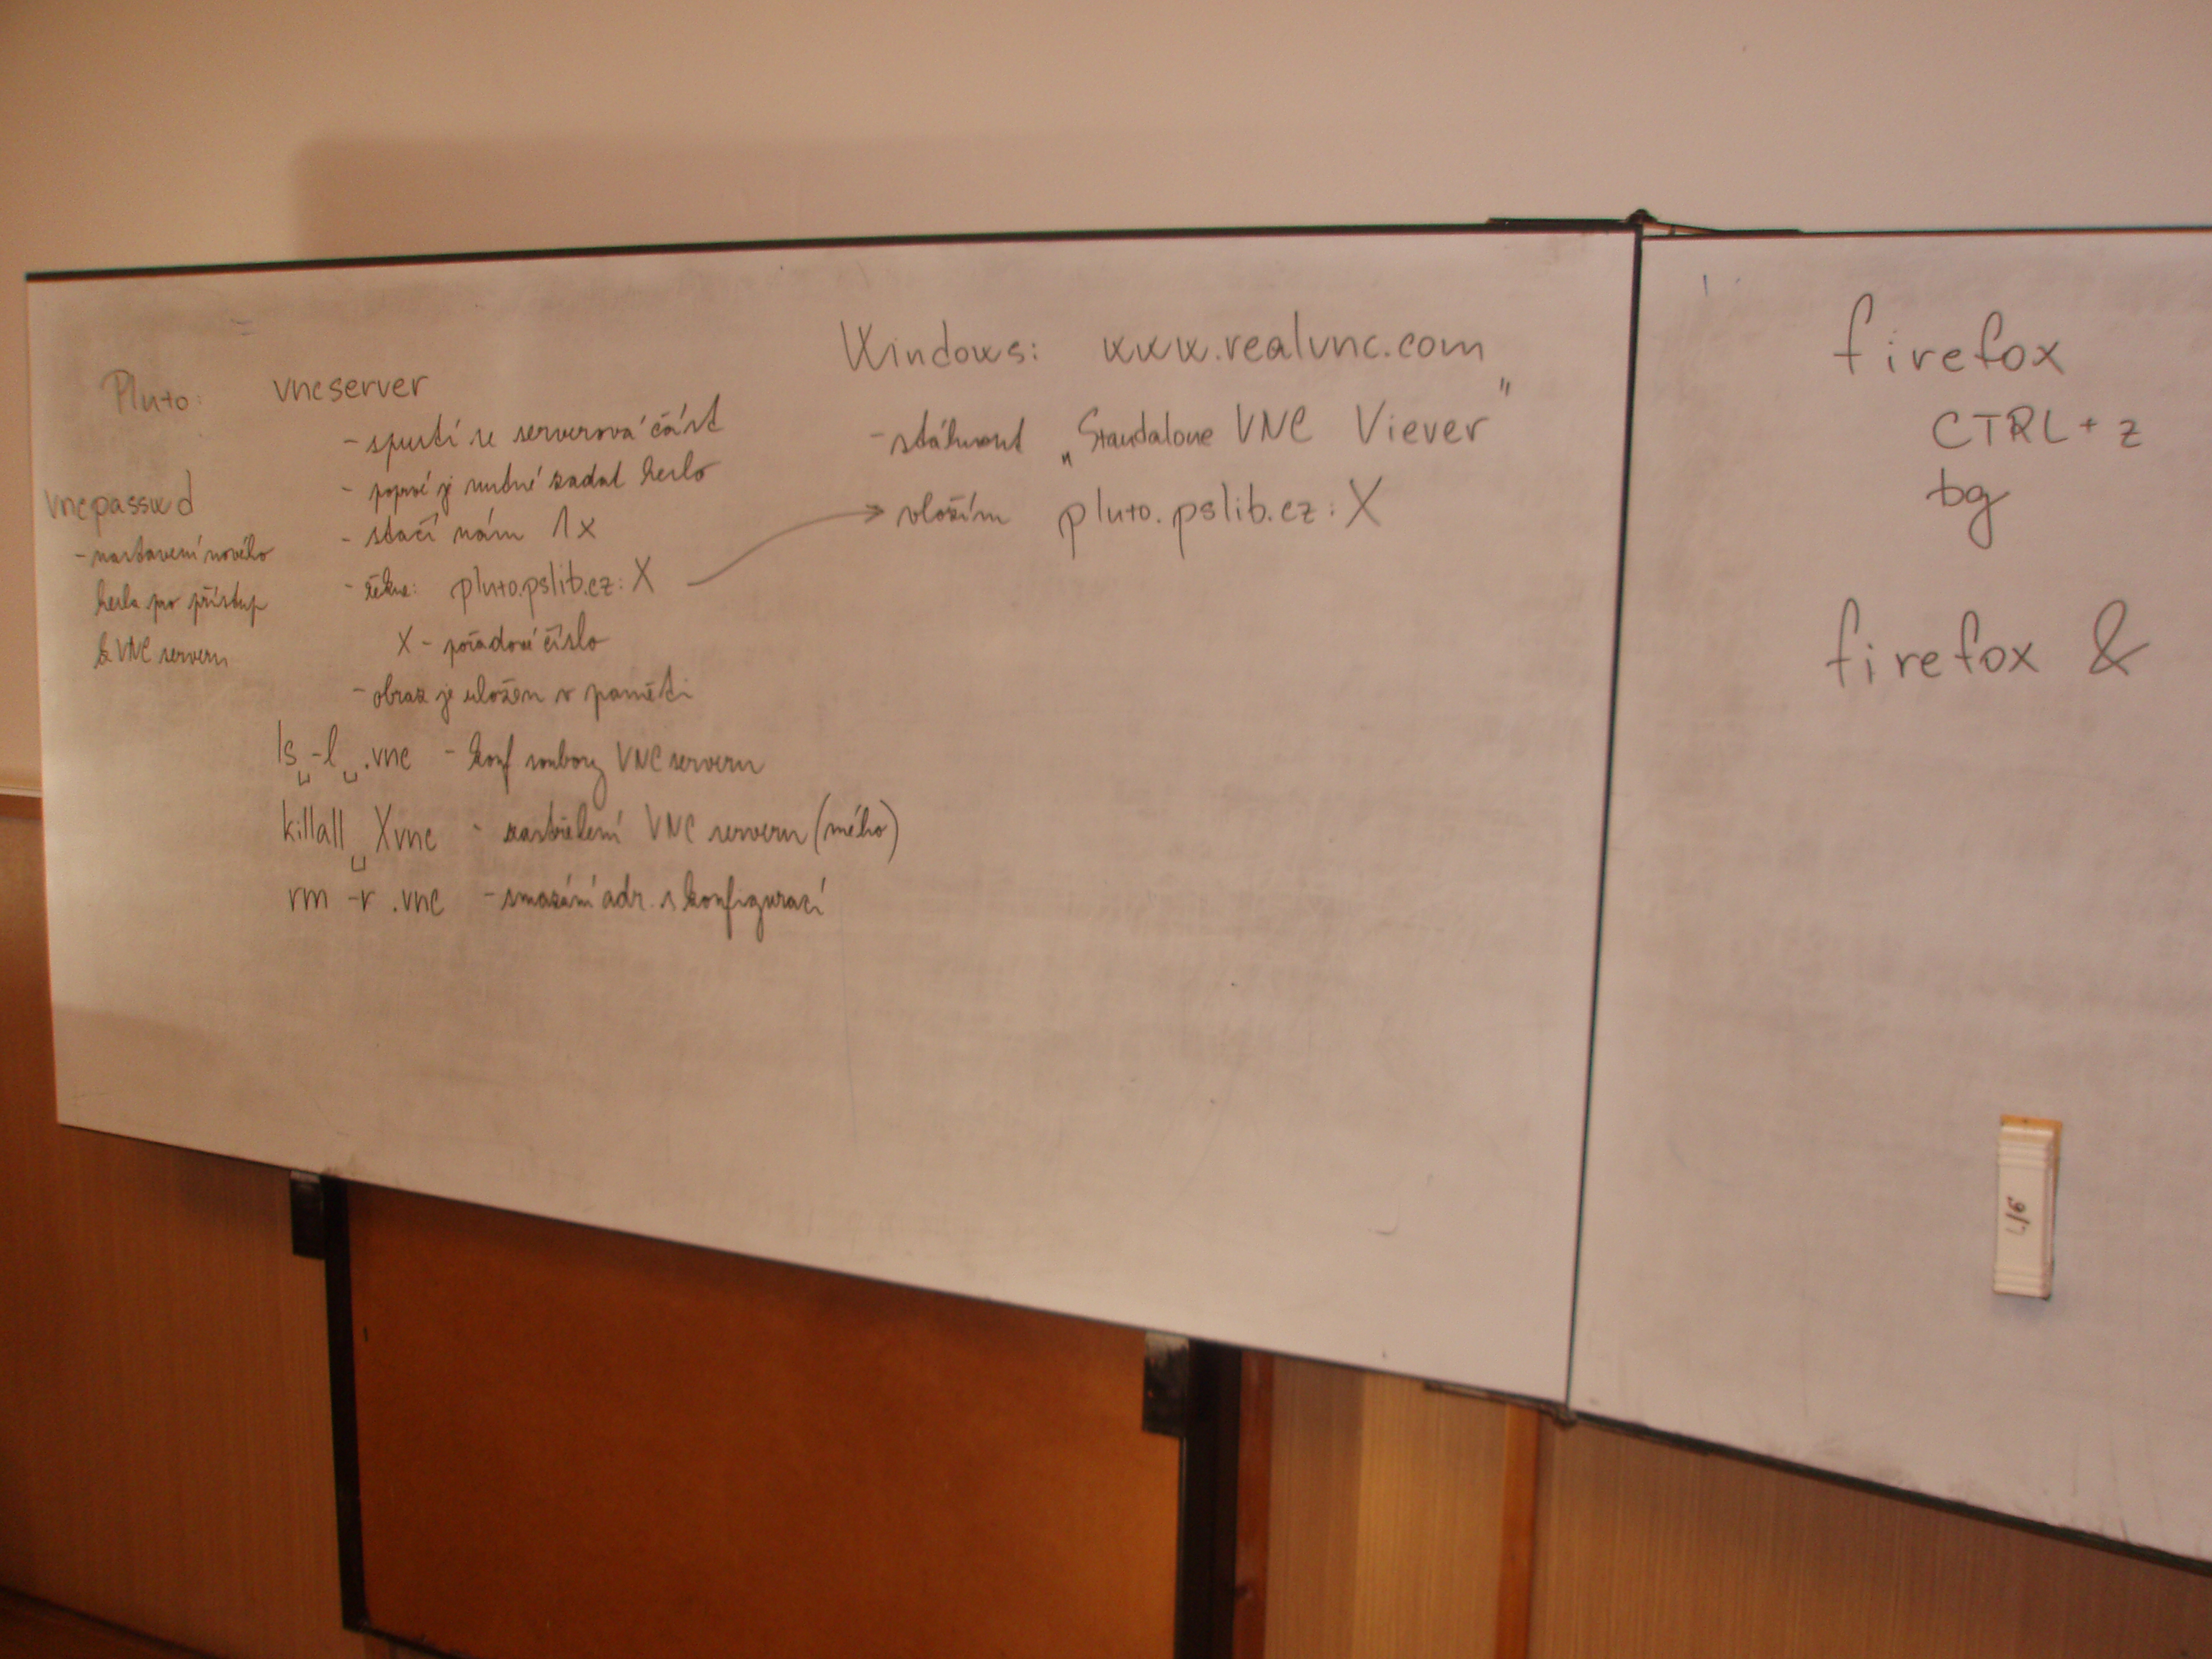 Pluto: vncserver
- spustí se serverová část
- poprvé je nutné zadat heslo
- stačí nám 1x
- řekne: pluto.pslib.cz:X
X - pořadové číslo
- obraz je uložen v paměti
vncpasswd
- nastavení nového
hesla pro přístup
k VNC serveru
ls␣-l␣.vnc - konf soubory VNC serveru
killall␣Xvnc - zastřelení VNC serveru (mého)
rm -r .vnc - smazání adr. s konfigurací
Windows: www.realvnc.com
- stáhnout „Standalone VNC Viever"
vložím pluto.pslib.cz:X
firefox
CTRL + z
bg
firefox &